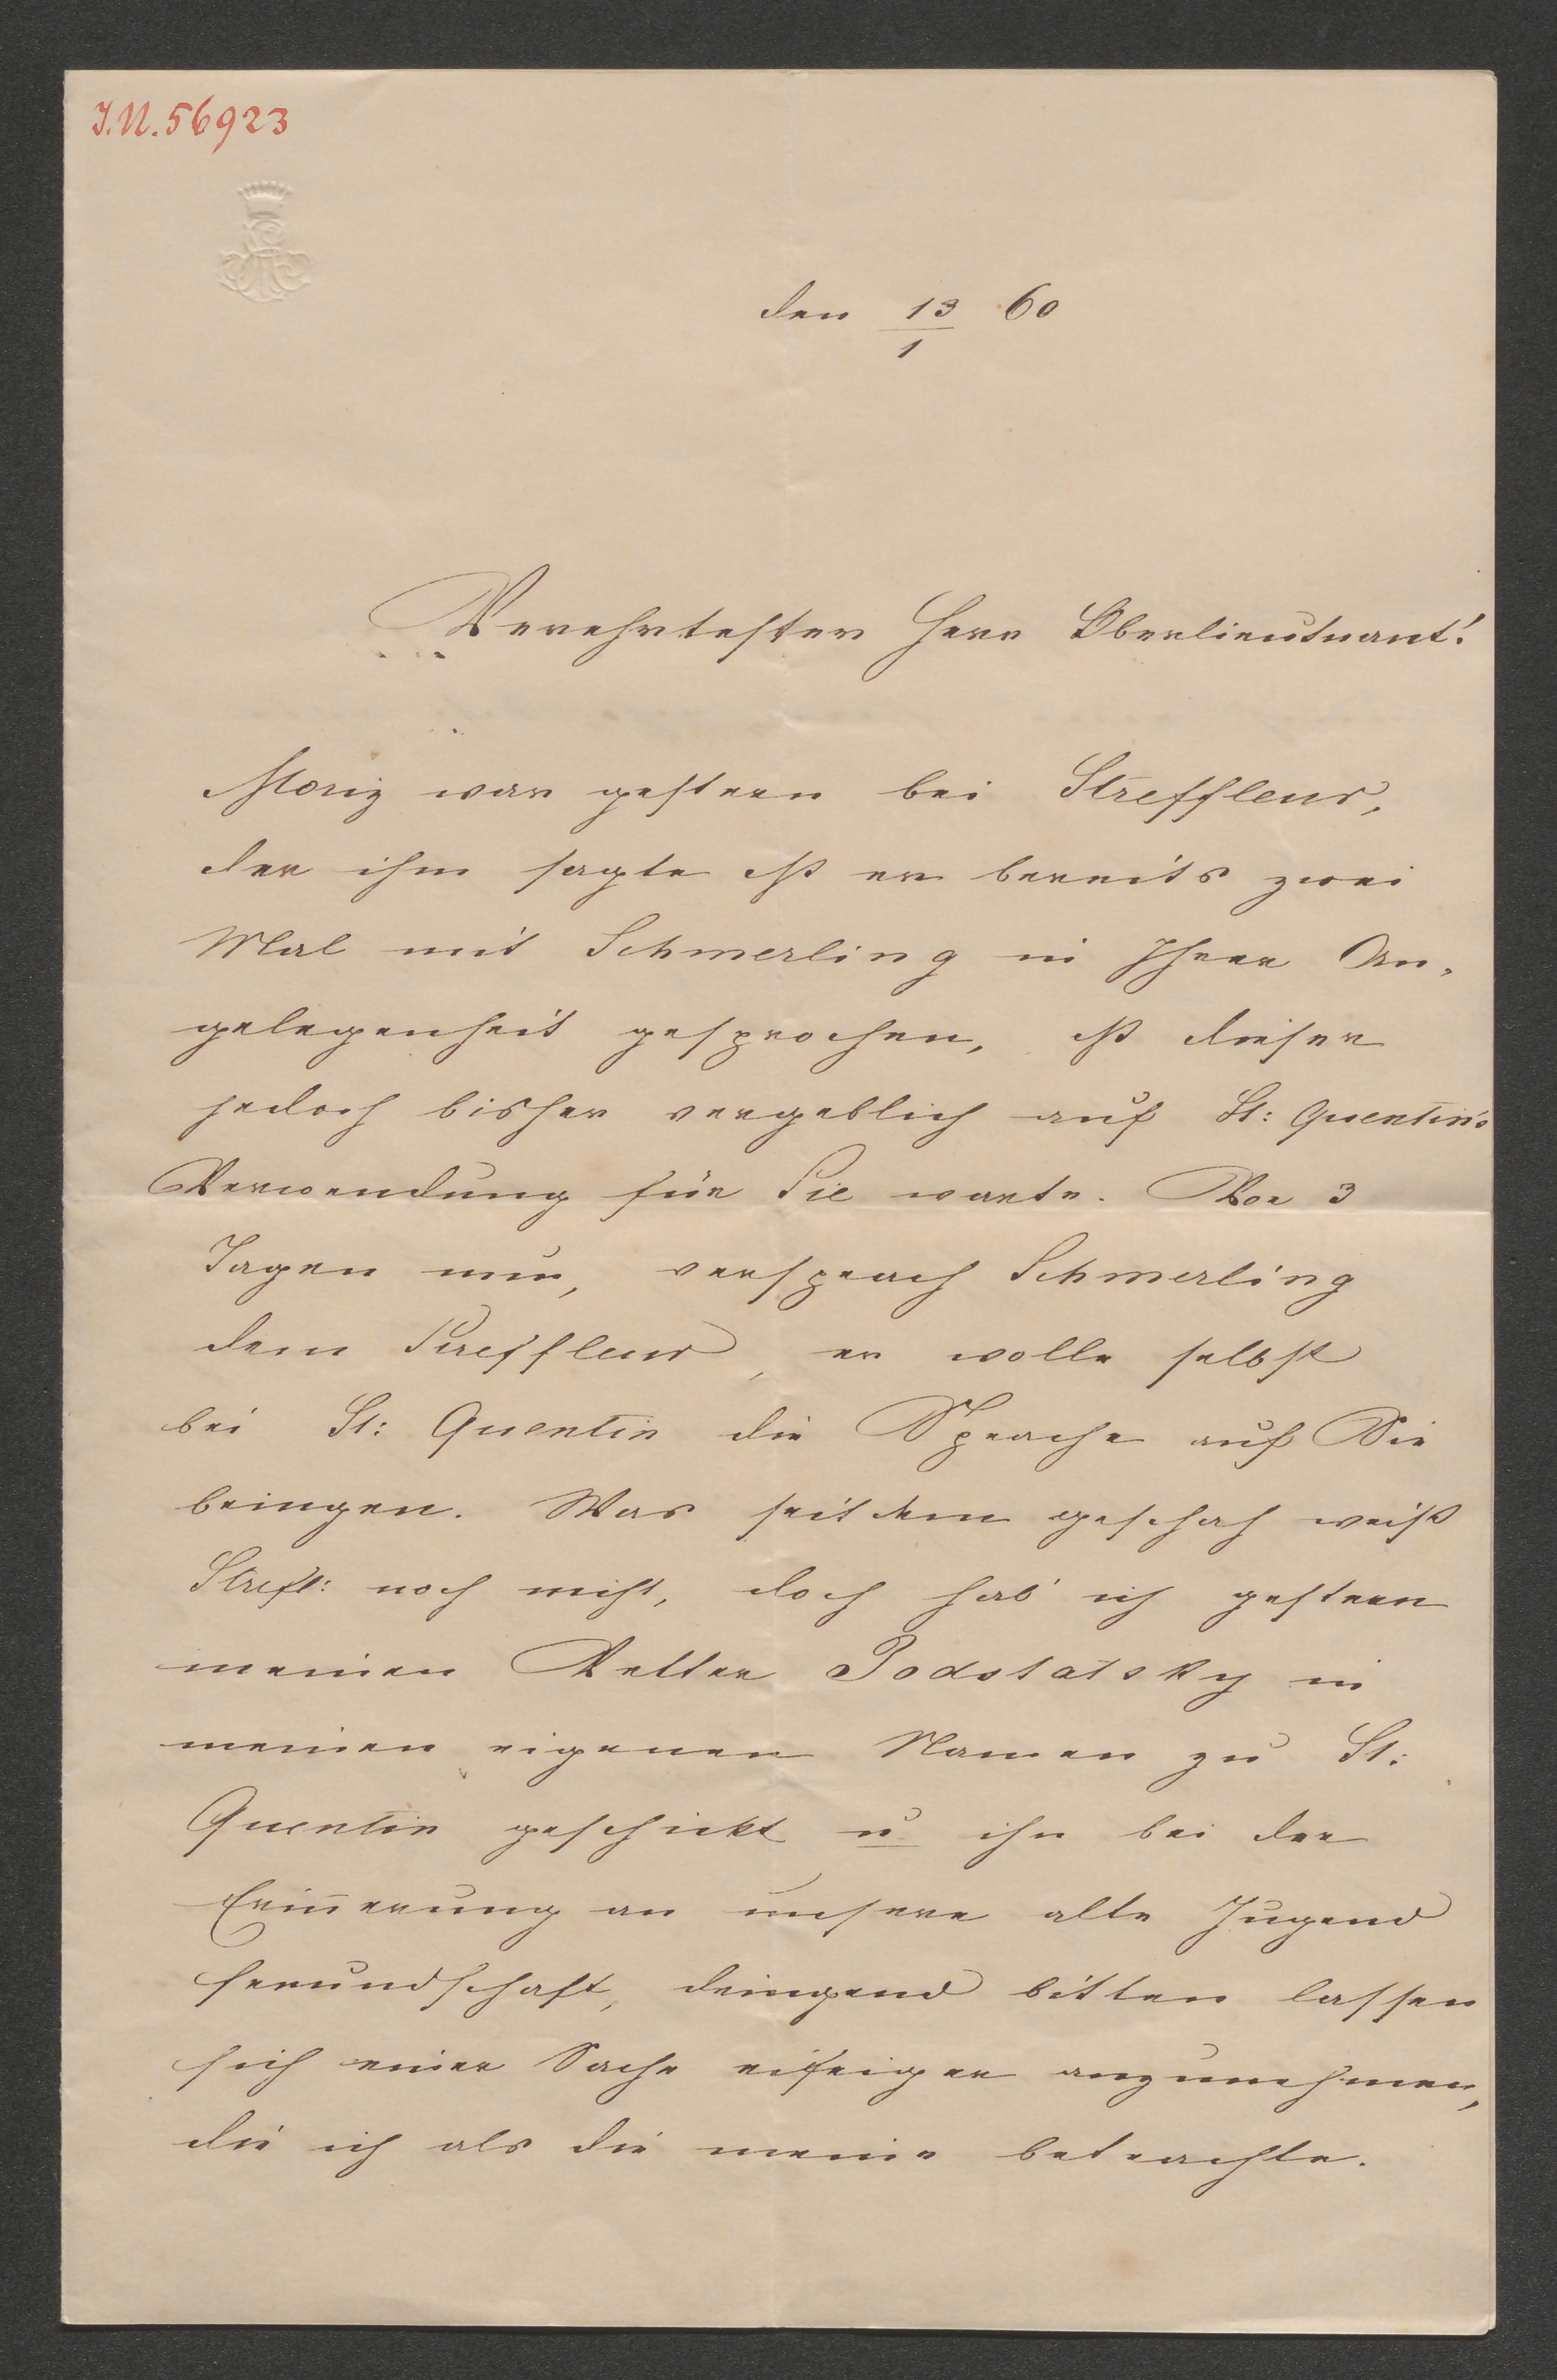 I.N. 56923
den 13/1 60
Verehrtester Herr Oberlieutnant!
Moriz war gestern bei Streffleur,
der ihm sagte dß er bereits zwei
Mal mit Schmerling in Ihrer An-
gelegenheit gesprochen, dß dieser
jedoch bisher vergeblich auf St: Quentin's
Verwendung für Sie warte. Vor 3
Tagen nun, versprach Schmerling
dem Streffleur, er wolle selbst
bei St: Quentin die Sprache auf Sie
bringen. Was seitdem geschah weiß
Strefl: noch nicht, doch hab' ich gestern
meinen Vetter Podstatsky in
meinen eigenen Namen zu St:
Quentin geschickt u ihn bei der
Erin̄erung an unsere alte Jugend
freundschaft, dringend bitten lassen
sich einer Sache eifriger anzunehmen,
die ich als die meine betrachte.